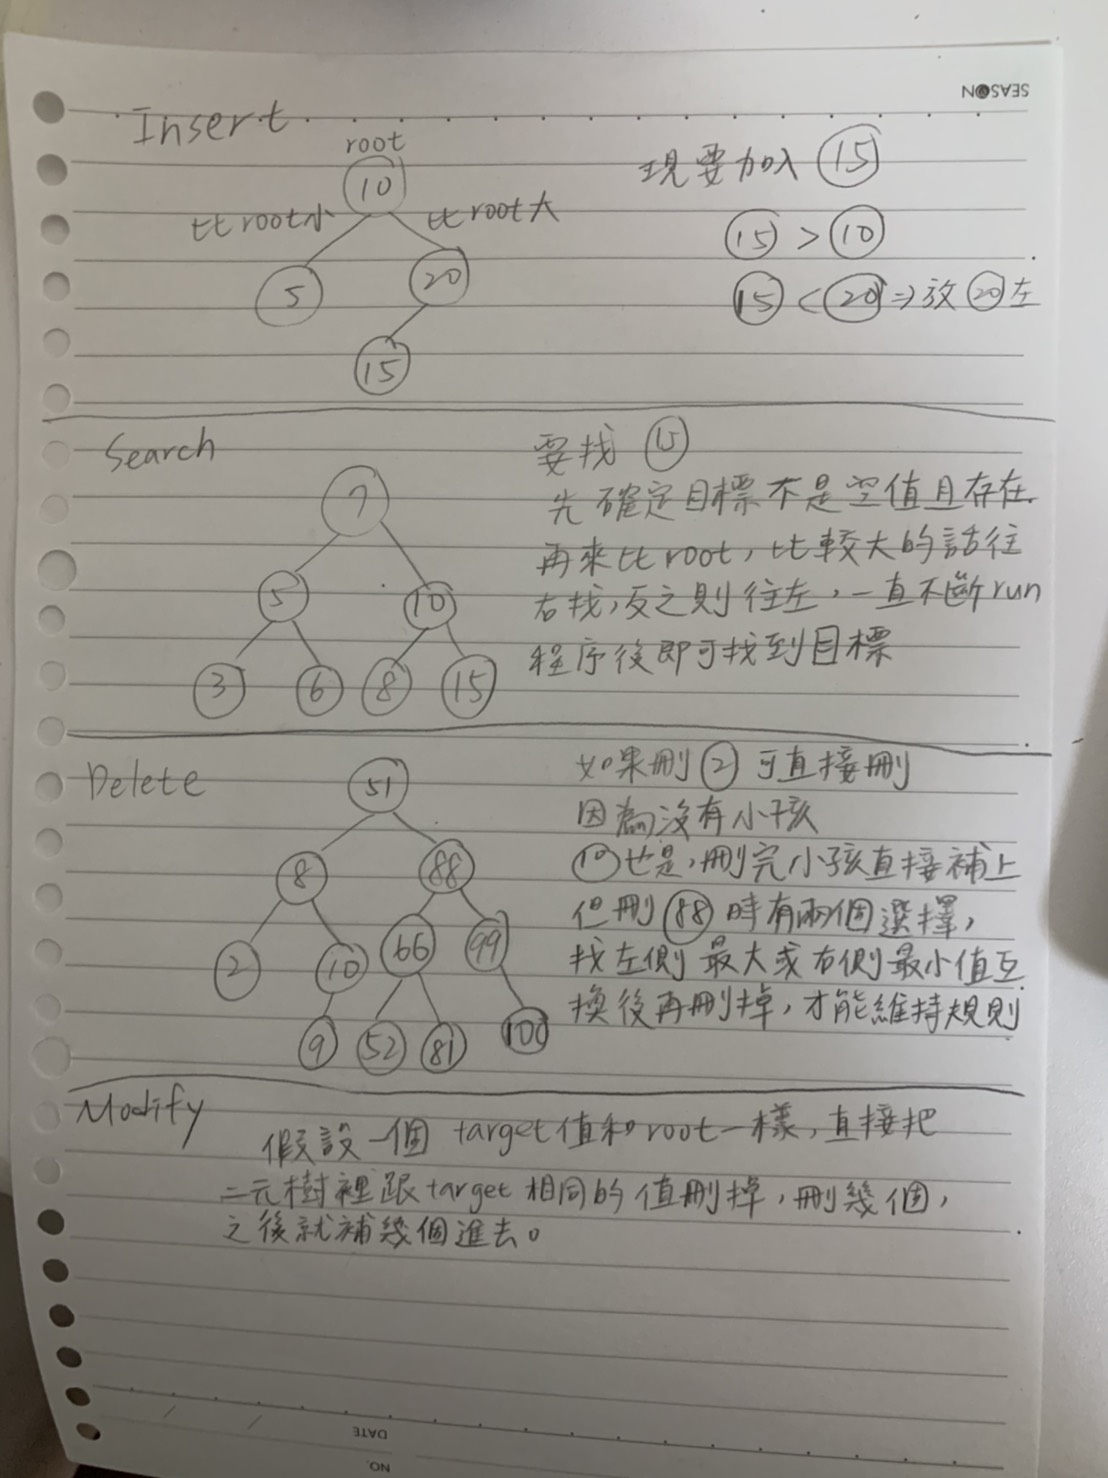 SEASON
Insert
root
10
比root小
比root大
5
20
15
現要加入 15
15 > 10
15 < 20 ⇒ 放 20 左
Search
7
5
10
3
6
8
15
要找 15
先確定目標不是空值且存在.
再來比root, 比較大的話往
右找,反之則往左,一直不斷run
程序後即可找到目標
Delete
51
8
88
2
10
66
99
9
52
81
100
如果刪 2 可直接刪
因為沒有小孩
10 也是,刪完小孩直接補上
但刪 88 時有兩個選擇,
找左側最大或右側最小值互
換後再刪掉,才能維持規則
Modify
假設一個 target值和root一樣,直接把
二元樹裡跟target相同的值刪掉,刪幾個,
之後就補幾個進去。
DATE
NO.